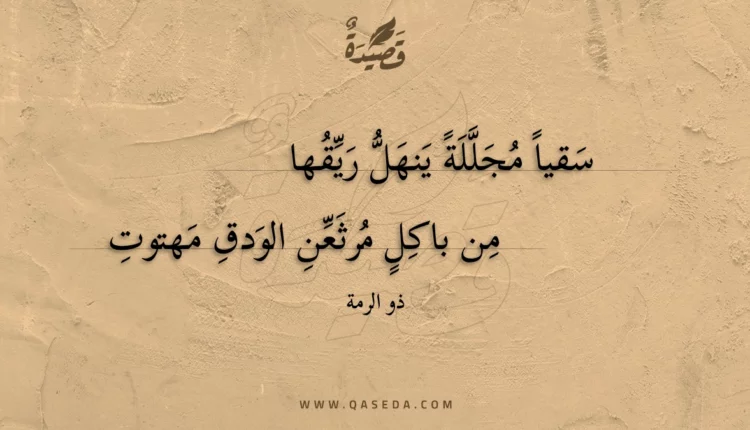 قَصِيدَةٌ
سَقياً مُجَلَّلَةً يَنهَلُّ رَيِّقُها
مِن باكِلٍ مُرثَعِّنِ الوَدقِ مَهتوتِ
ذو الرمة
WWW.QASEDA.COM